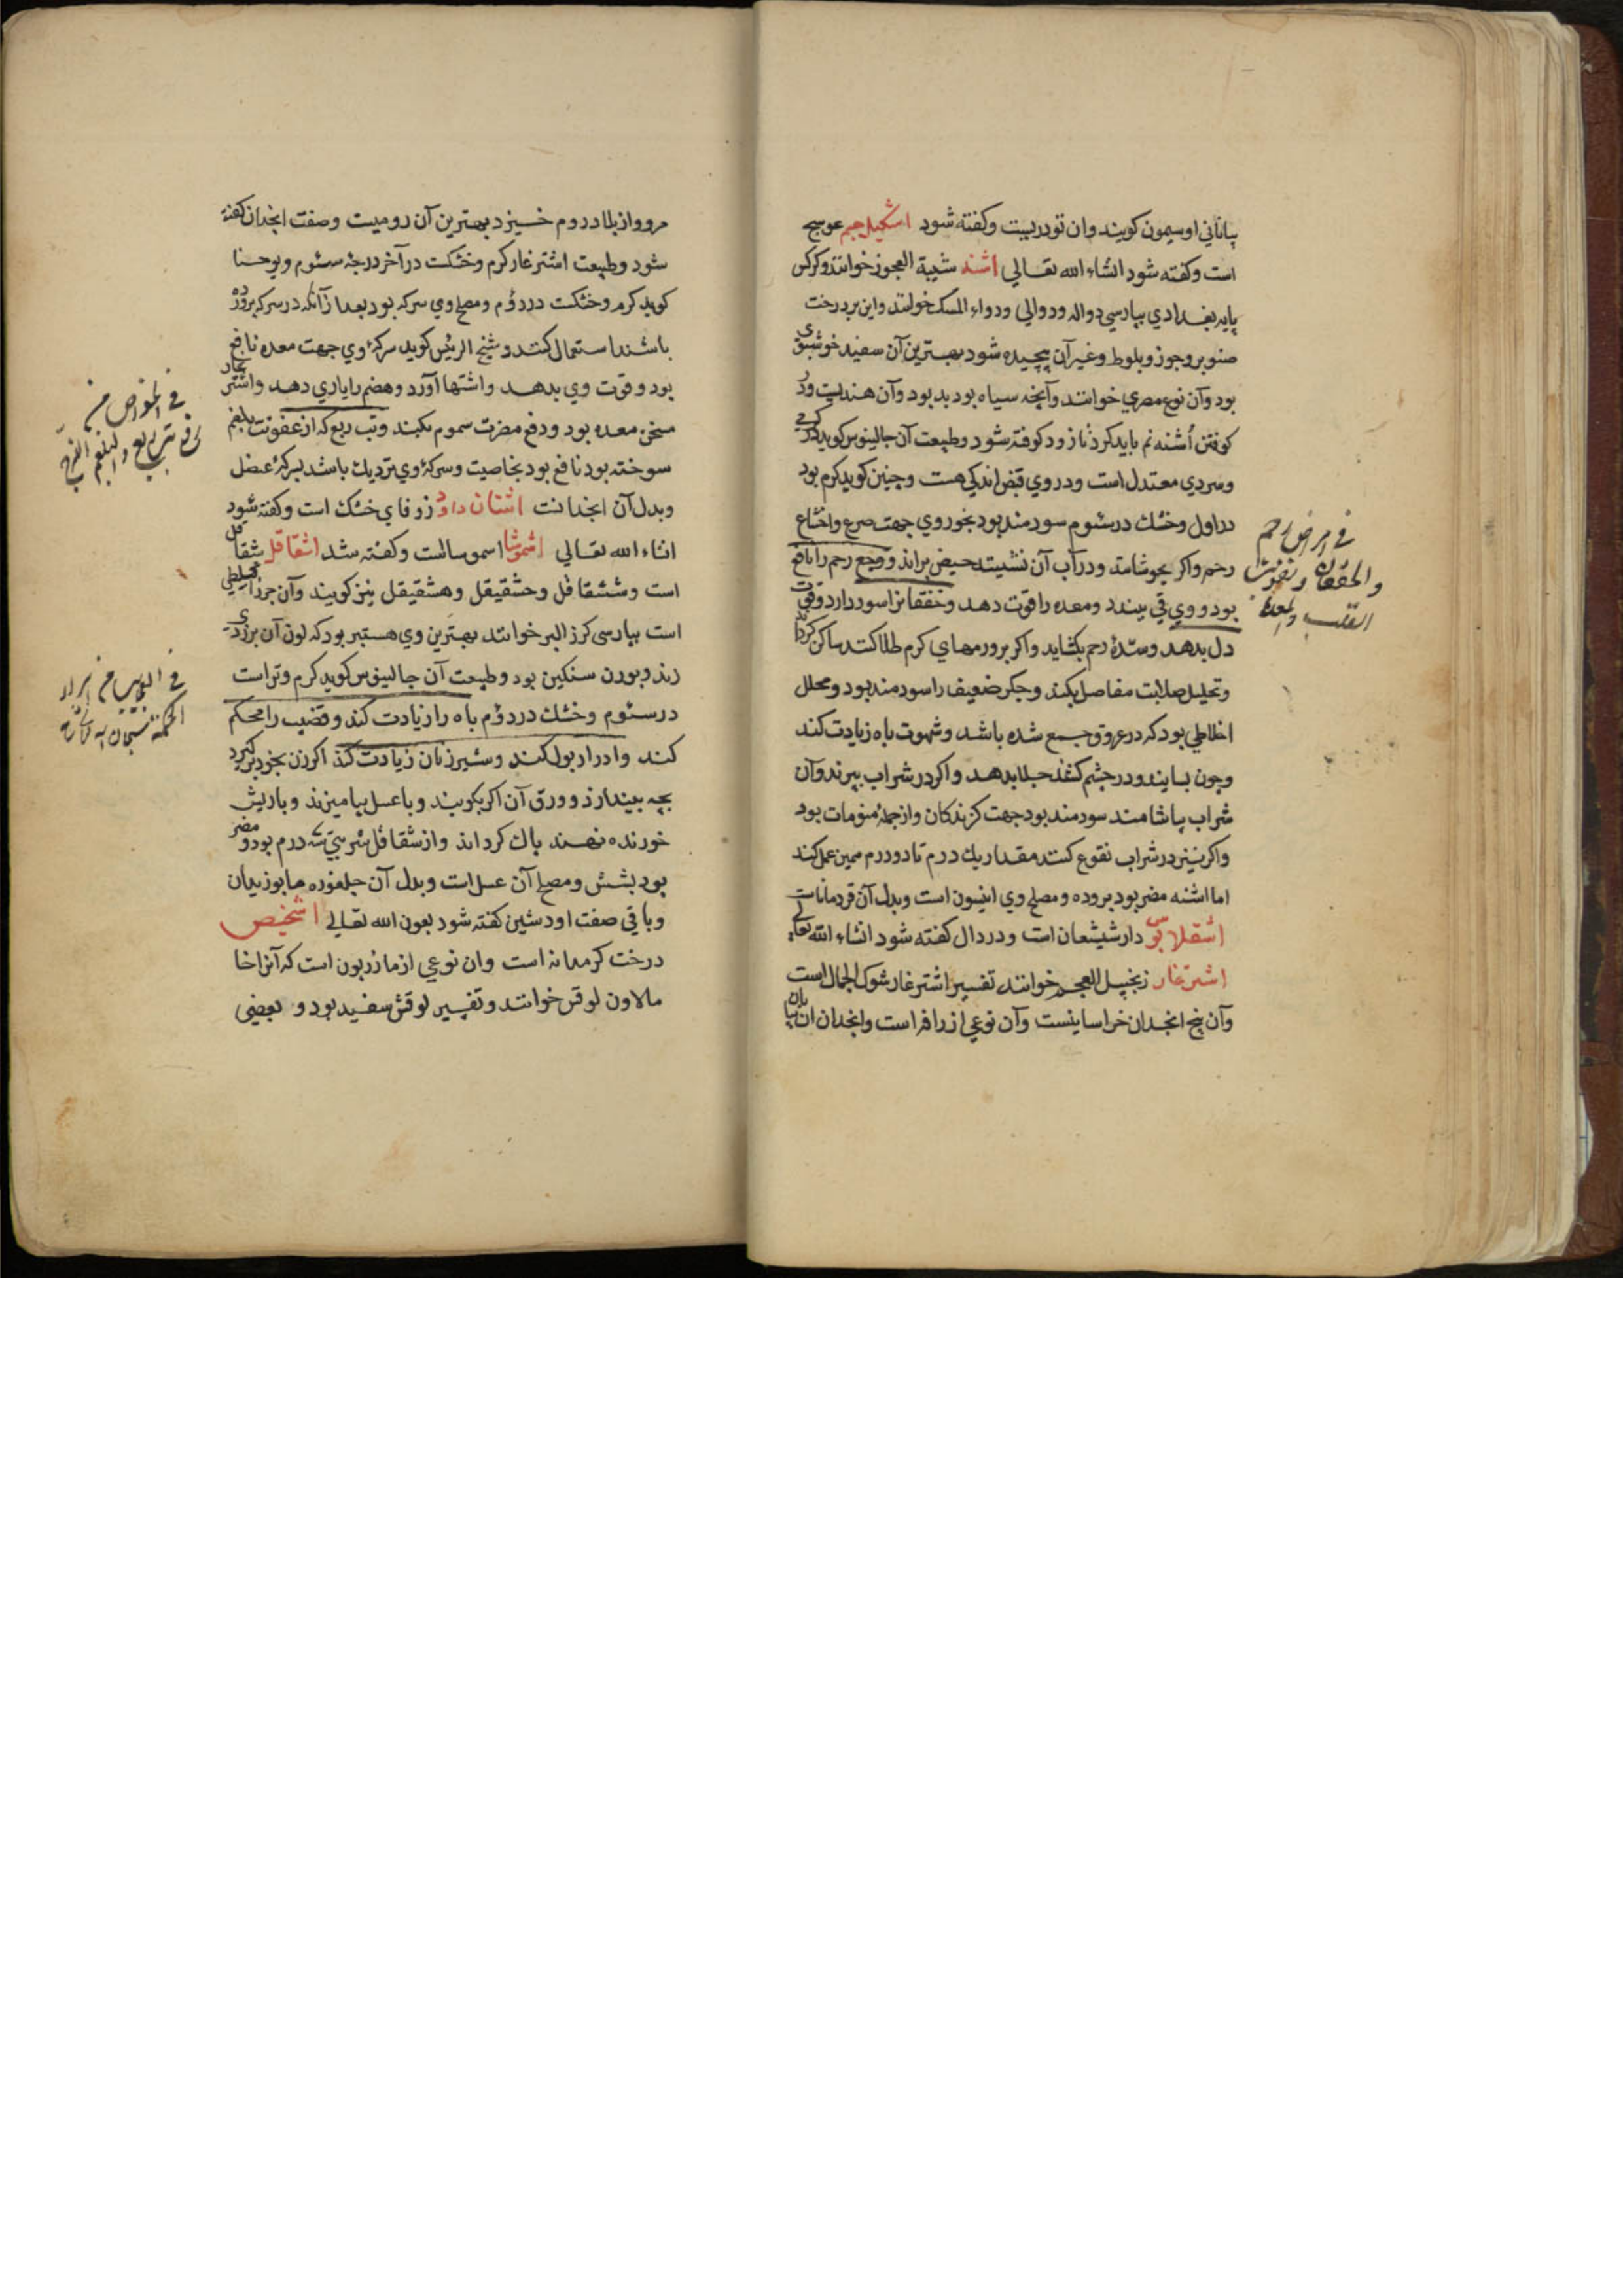 بیابانی اوسیمون کویند وان تودریست وکفته شود اشکیل جم عوسج
است وکفته شود انشاء الله تعالی اشنه شیبة العجوز خوانند وکرکس
پایه بغدادی بپارسی دواله ودوالی ودواء المسک خوانند واین بر درخت
صنوبر وجوز وبلوط وغیر آن پیچیده شود بهترین آن سفید خوشبوی
بود وآن نوع مصری خوانند وآنچه سیاه بود بد بود وآن هندیست ودر
کوفتن اشنه نم باید کرد تا زود کوفته شود وطبیعت آن جالینوس کوید در کرمی
وسردی معتدل است ودر وی قبض اندکی هست وچنین کوید کرم بود
در اول وخشک در سئوم سودمند بود بخور وی جهت صرع واختناق
رحم واکر بجوشانند ودر آب آن نشینند حیض براند ووجع رحم را نافع
بود ووی قی ببندد ومعده را قوت دهد وخفقانرا سود دارد وقوت
دل بدهد وسدهٔ رحم بکشاید واکر بر ورمهای کرم طلا کنند ساکن کرداند
وتحلیل صلابت مفاصل بکند وجکر ضعیف را سودمند بود ومحلل
اخلاطی بود که در عروق جمع شده باشد وشهوت باه زیادت کند
وچون بسایند ودر چشم کشند جلا بدهد واکر در شراب بپزند وآن
شراب بیاشامند سودمند بود جهت کزندکان واز جملهٔ منومات بود
واکر نیز در شراب نقوع کنند مقدار یک درم تا دو درم همین عمل کند
اما اشنه مضر بود بروده ومصلح وی انیسون است وبدل آن قردماناست
اشقلابس دارشیشعان است ودر دال کفته شود انشاء الله تعالی
اشترغار زنجبیل العجم خوانند تفسیر اشترغار شوک الجمال است
وآن بیخ انجدان خراسانیست وآن نوعی از رافه است وانجدان ان بیابان
فی امراض رحم
والخفقان وتقویت
القلب والمعدة
مرو واز بلاد روم خیزد بهترین آن رومیست وصفت انجدان کفته
شود وطبیعت اشترغار کرم وخشکست در آخر درجهٔ سئوم ویوحنا
کوید کرم وخشکست در دوم ومصلح وی سرکه بود بعد از آنکه در سرکه پرورده
باشند استعمال کنند وشیخ الرئیس کوید سرکهٔ وی جهت معده نافع
بود وقوت وی بدهد واشتها آورد وهضم را یاری دهد واشترغار
مسخن معده بود ودفع مضرت سموم بکند وتب ربع که از عفونت بلغم
سوخته بود نافع بود بخاصیت وسرکهٔ وی نزدیک باشد بسرکهٔ عنصل
وبدل آن انجدانست اشنان داود زوفای خشک است وکفته شود
انشاء الله تعالی اشموشا اسموساست وکفته شد اشقاقل شقاقل
است وششقاقل وحشقیقل وهشقیقل نیز کویند وآن جزر اقلیطی
است بپارسی کرز البر خوانند بهترین وی هستبر بود که لون آن بزردی
زند وبوزن سنکین بود وطبیعت آن جالینوس کوید کرم وتر است
در سئوم وخشک در دوم باه را زیادت کند وقضیب را محکم
کند وادرار بول کند وشیر زنان زیادت کند اکر زن بخود برکیرد
بچه بیندازد وورق آن اکر بکوبند وبا عسل بیامیزند وبا ریش
خورنده نهند پاک کرداند واز شقاقل شربتی سه درم بود ومضر
بود بشش ومصلح آن عسل است وبدل آن جلغوزه یا بوزیدان
وباقی صفت او در شین کفته شود بعون الله تعالی اشخیص
درخت کرمدانه است وان نوعی از مازریون است که آنرا خا
مالاون لوقس خوانند وتفسیر لوقس سفید بود و بعضی
فی الخواص من